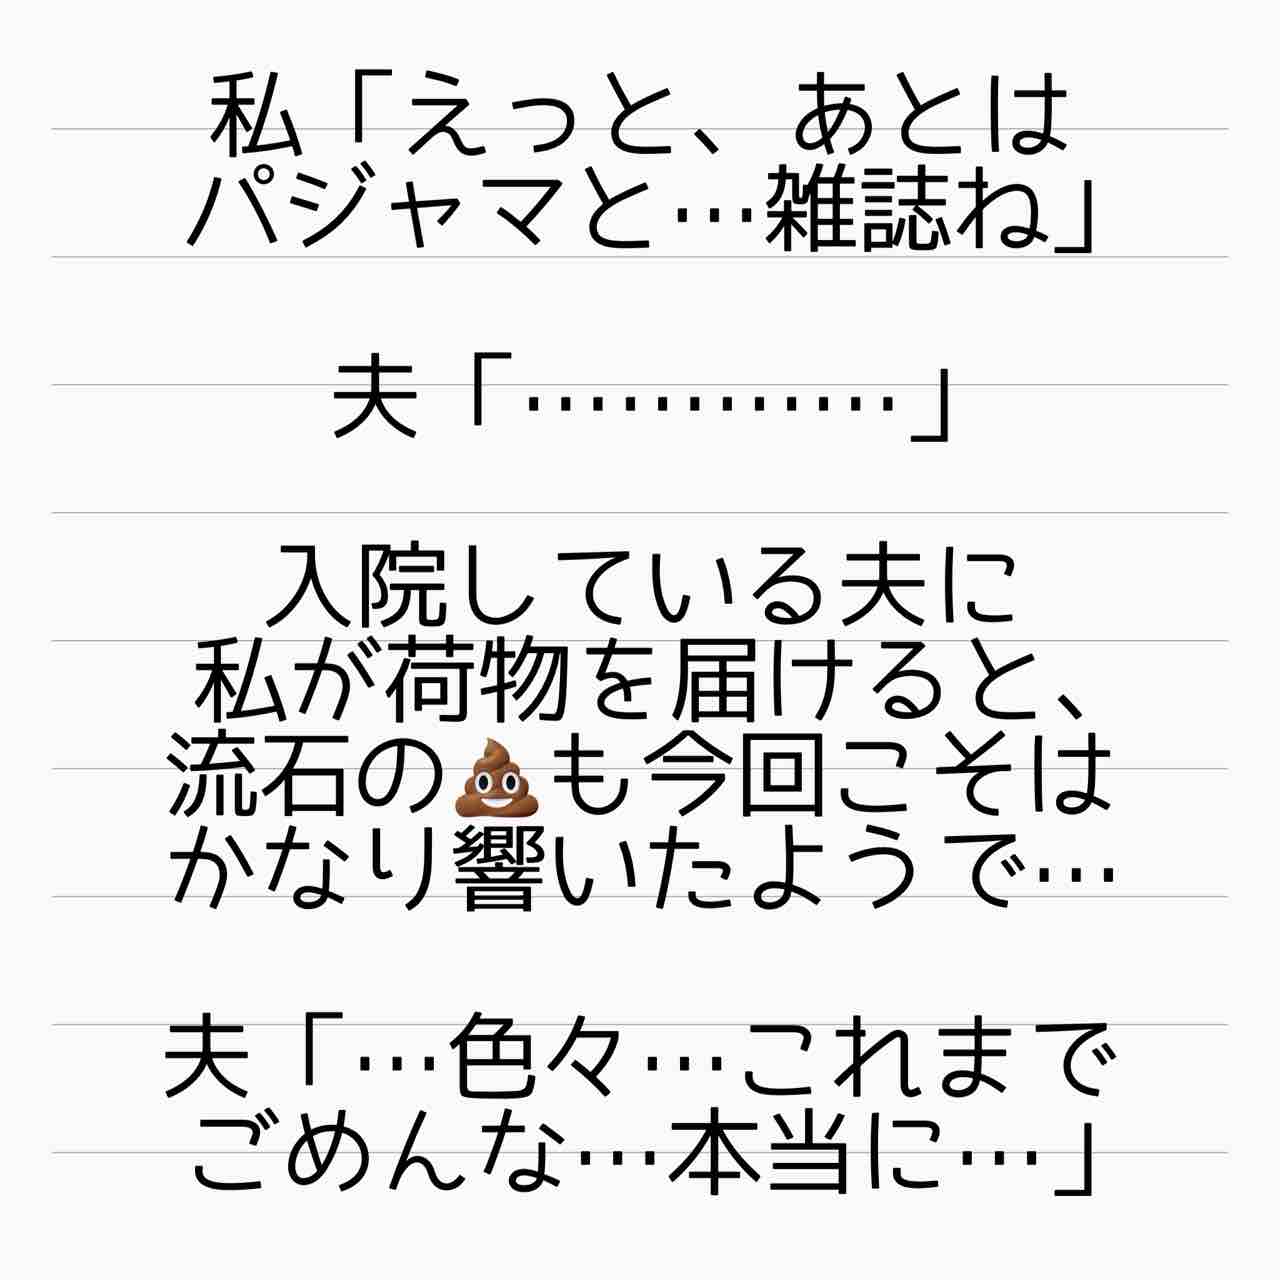 私「えっと、あとは
パジャマと…雑誌ね」
夫「…………」
入院している夫に
私が荷物を届けると、
流石の💩も今回こそは
かなり響いたようで…
夫「…色々…これまで
ごめんな…本当に…」